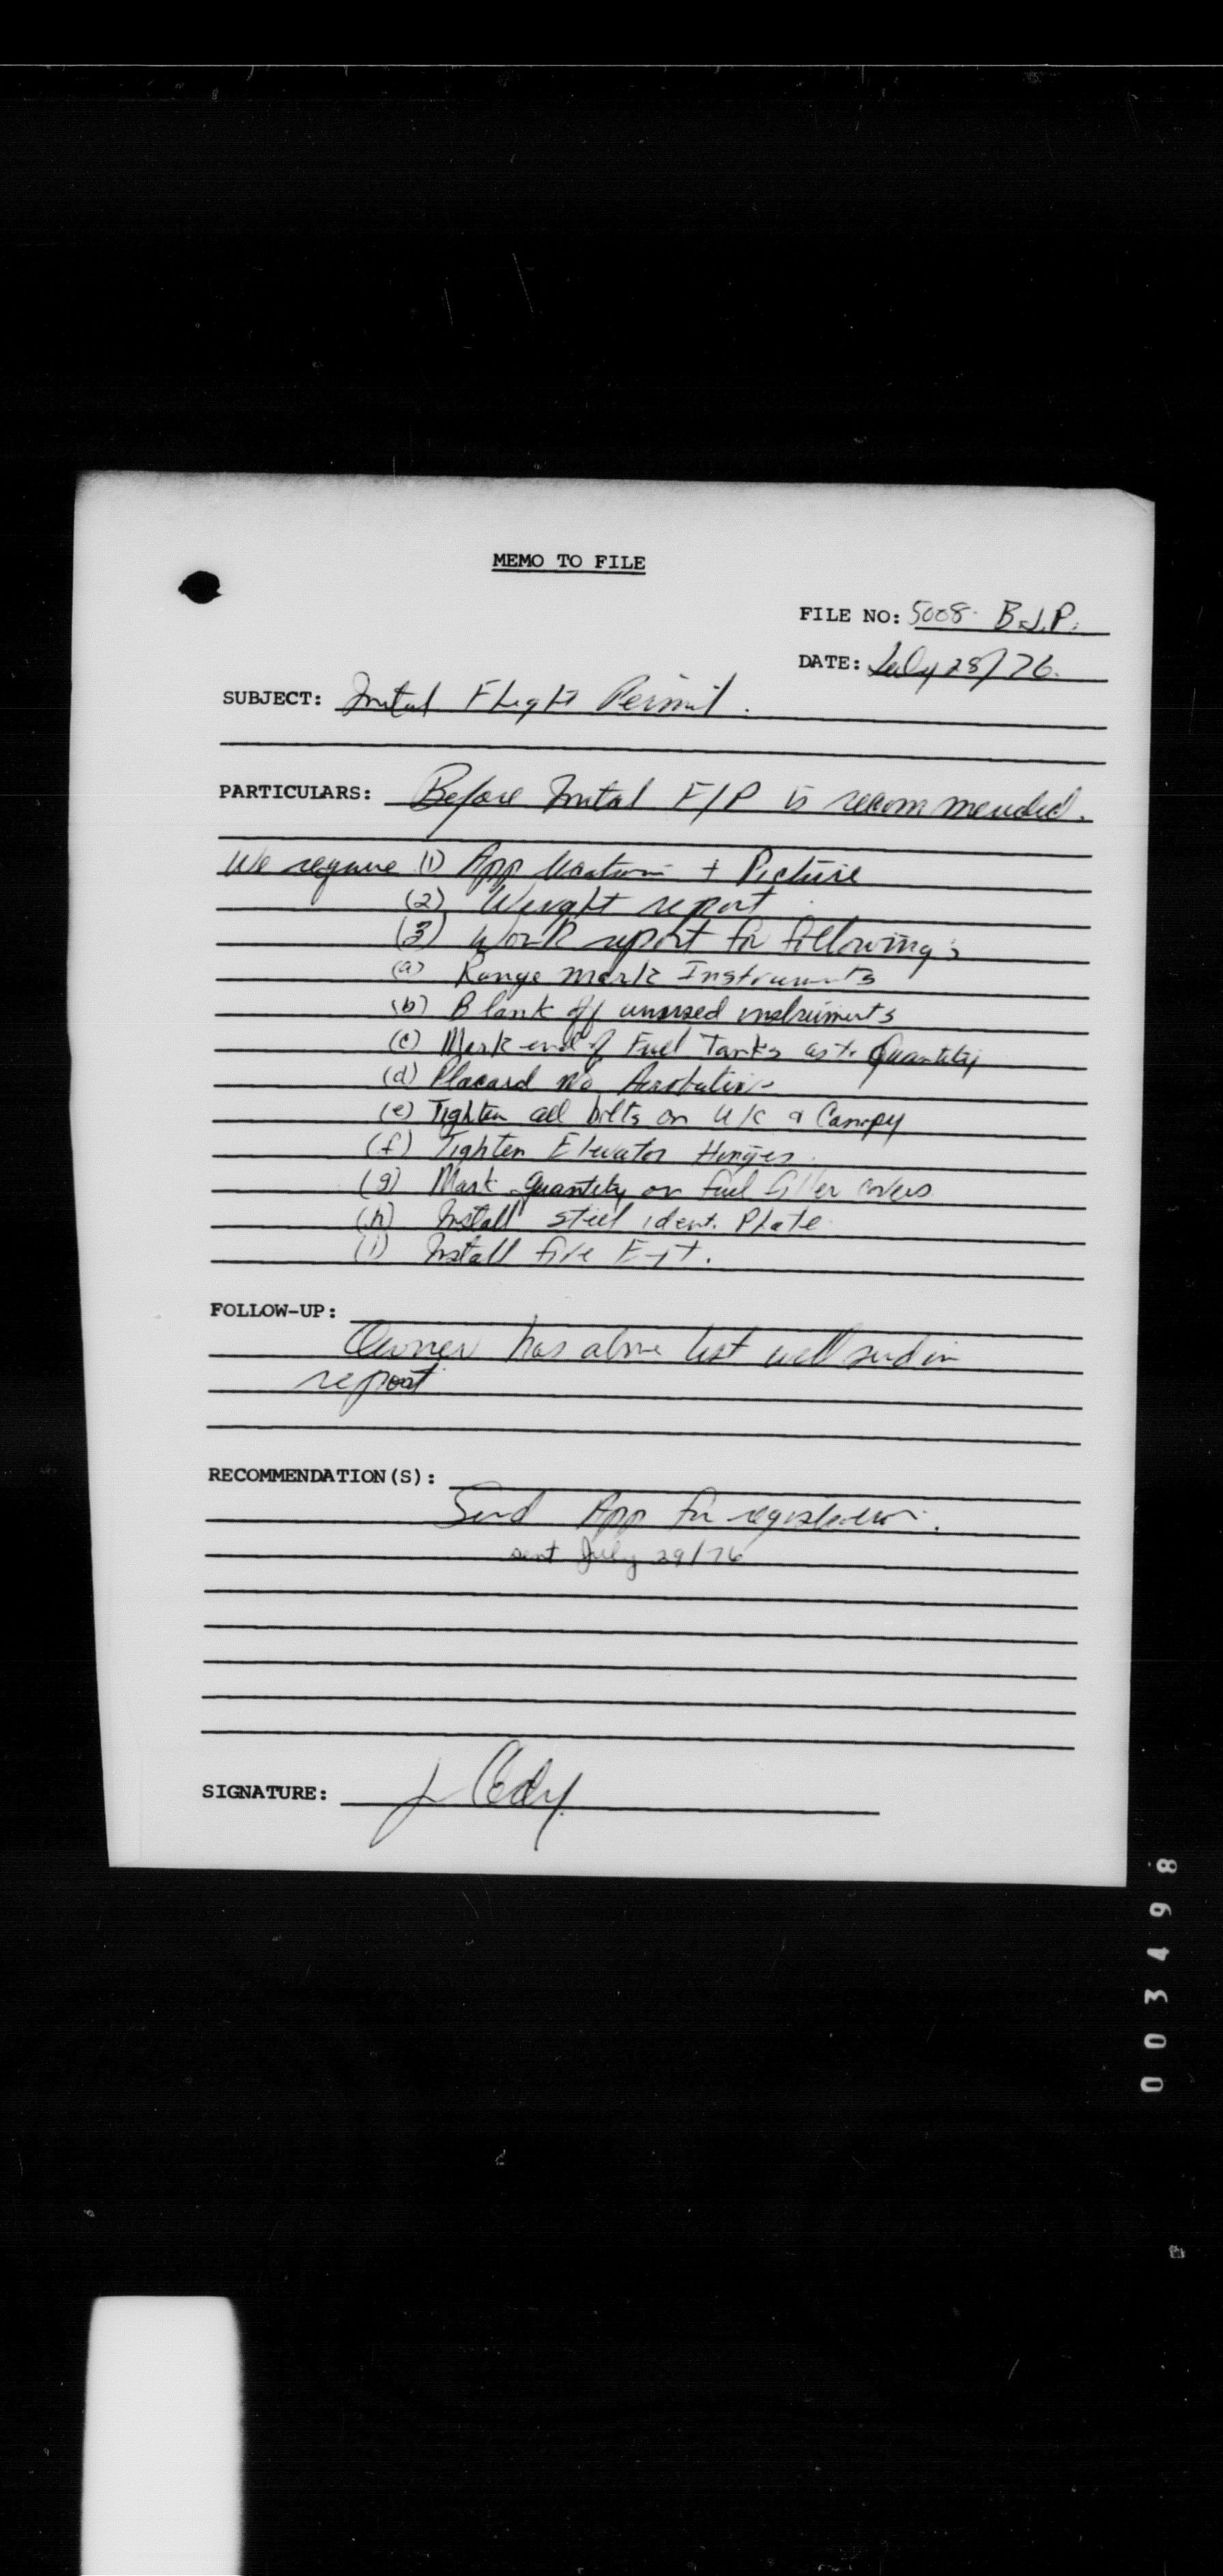 MEMO TO FILE
FILE NO: 5008 B.J.P.
DATE: July 28/76.
SUBJECT: Inital Flight Permit.
PARTICULARS: Before Inital F/P is recommended.
We require (1) Application + Picture
(2) Weight report
(3) Work report for following;
(a) Range mark Instruments
(b) Blank off unused instruments
(c) Mark end of Fuel Tanks as to Quantity
(d) Placard no Aerobatics
(e) Tighten all bolts on U/C & Canopy
(f) Tighten Elevator Hinges.
(g) Mark Quantity on fuel filler covers
(h) Install steel ident. Plate.
(i) Install fire Ext.
FOLLOW-UP:
Owner has above list will send in
report
RECOMMENDATION(S):
Send App for registration.
sent July 29/76
SIGNATURE:
003498